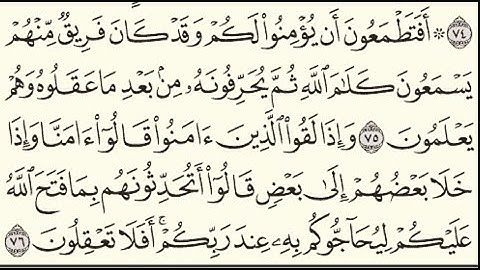 ٧٤ ۞ أَفَتَطْمَعُونَ أَن يُؤْمِنُوا۟ لَكُمْ وَقَدْ كَانَ فَرِيقٌ مِّنْهُمْ
يَسْمَعُونَ كَلَٰمَ ٱللَّهِ ثُمَّ يُحَرِّفُونَهُۥ مِنۢ بَعْدِ مَا عَقَلُوهُ وَهُمْ
يَعْلَمُونَ ٧٥ وَإِذَا لَقُوا۟ ٱلَّذِينَ ءَامَنُوا۟ قَالُوٓا۟ ءَامَنَّا وَإِذَا
خَلَا بَعْضُهُمْ إِلَىٰ بَعْضٍ قَالُوٓا۟ أَتُحَدِّثُونَهُم بِمَا فَتَحَ ٱللَّهُ
عَلَيْكُمْ لِيُحَآجُّوكُم بِهِۦ عِندَ رَبِّكُمْ ۚ أَفَلَا تَعْقِلُونَ ٧٦